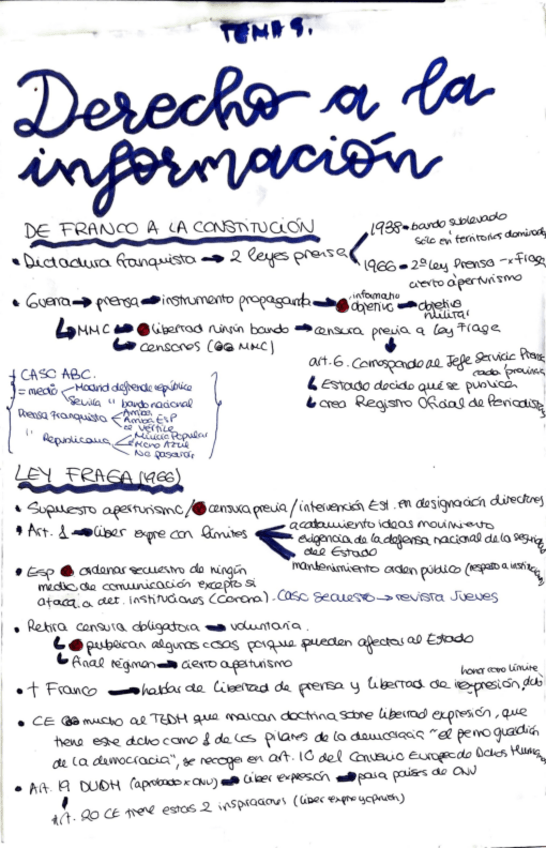 TEMA 9.
Derecho a la
información
DE FRANCO A LA CONSTITUCIÓN
• Dictadura franquista → 2 leyes prensa
1938 - bando sublevado
solo en territorios
1966 - 2ª Ley Prensa → Fraga
cierto aperturismo
• Guerra → prensa → instrumento propaganda → objetivo informativo → objetivo militar
↳ MMC → libertad ningún bando → censura previa a Ley Fraga
↳ censores
art. 6. Corresponde al Jefe Servicio
↳ Estado decide qué se publica
↳ crea Registro Oficial de
CASO ABC.
= medio
Madrid defiende república
Sevilla " bando nacional
Prensa Franquista
Arriba
ESP
Vértice
" Republicana
Milicia Popular
Mono Azul
No pasarán
LEY FRAGA (1966)
• Supuesto aperturismo / censura previa / intervención Est. en designación directores
• Art. 1 → liber expre con límites
acatamiento ideas movimiento
exigencia de la defensa nacional de la
del Estado
mantenimiento orden público (respeto a
• Esp ordenar secuestro de ningún
medio de comunicación excepto si
ataca a det. instituciones (Corona). Caso secuestro → revista Jueves
• Retira censura obligatoria → voluntaria.
↳ publican algunas cosas porque pueden afectar al Estado
↳ Final régimen → cierto aperturismo
• † Franco → hablar de libertad de prensa y libertad de expresión,
honor como límite
• CE mucho al TEDH que marcan doctrina sobre libertad expresión, que
tiene este dcho como 1 de los pilares de la democracia "el perro guardián
de la democracia", se recoge en art. 10 del Convenio Europeo de Dchos
• Art. 19 DUDH (aprobado x ONU) → liber expresión → para países de ONU
Art. 20 CE tiene estas 2 inspiraciones